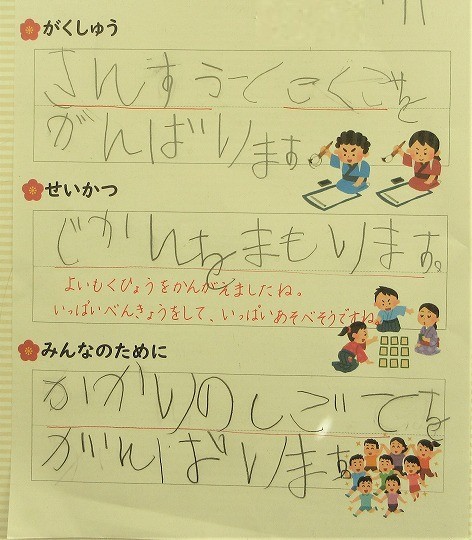 がくしゅう
さんすうとこくごを
がんばります。
せいかつ
じかんをまもります。
よいもくひょうをかんがえましたね。
いっぱいべんきょうをして、いっぱいあそべそうですね。
みんなのために
かかりのしごとを
がんばります。